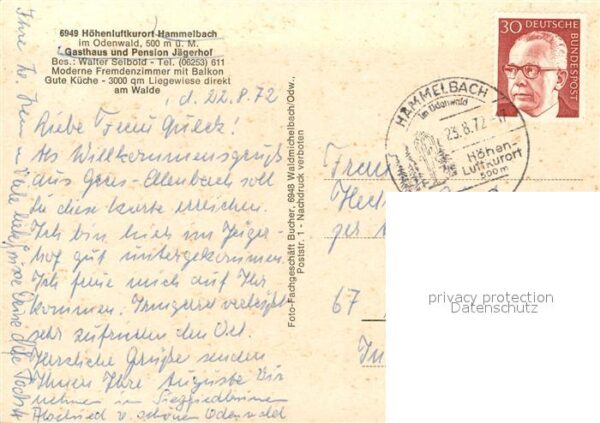 6949 Höhenluftkurort Hammelbach
im Odenwald, 500 m ü. M.
Gasthaus und Pension Jägerhof
Bes.: Walter Seibold - Tel. (06253) 611
Moderne Fremdenzimmer mit Balkon
Gute Küche - 3000 qm Liegewiese direkt
am Walde
d. 22.8.72
Liebe Frau
Als Willkommensgruß
aus Gras-Ellenbach soll
Sie diese Karte erreichen.
Ich bin hier im Jäger-
hof gut untergekommen.
Ich freue mich auf Ihr
kommen. Irmgard verläßt
sehr zufrieden den Ort.
Herzliche Grüße senden
Ihnen Ihre Auguste Wir
nehmen im Siegfriedbrunnen
Abschied v. schönen Odenwald
Foto-Fachgeschäft Bucher, 6948 Waldmichelbach/Odw.,
Poststr. 1 - Nachdruck verboten
30 DEUTSCHE
BUNDESPOST
HAMMELBACH
im Odenwald
23.8.72
Höhen-
Luftkurort
500 m
67
privacy protection
Datenschutz